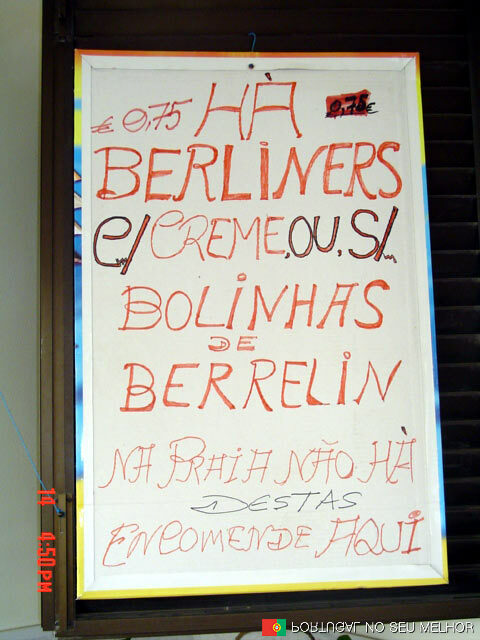 HÀ
€ 0,75
0,75€
BERLiNERS
C/ CREME, OU, S/.
BOLiNHAS
DE
BERRELiN
NA PRAiA NÃO HÀ
DESTAS
ENCOMENDE AQUi
14 4:50PM
PORTUGAL NO SEU MELHOR